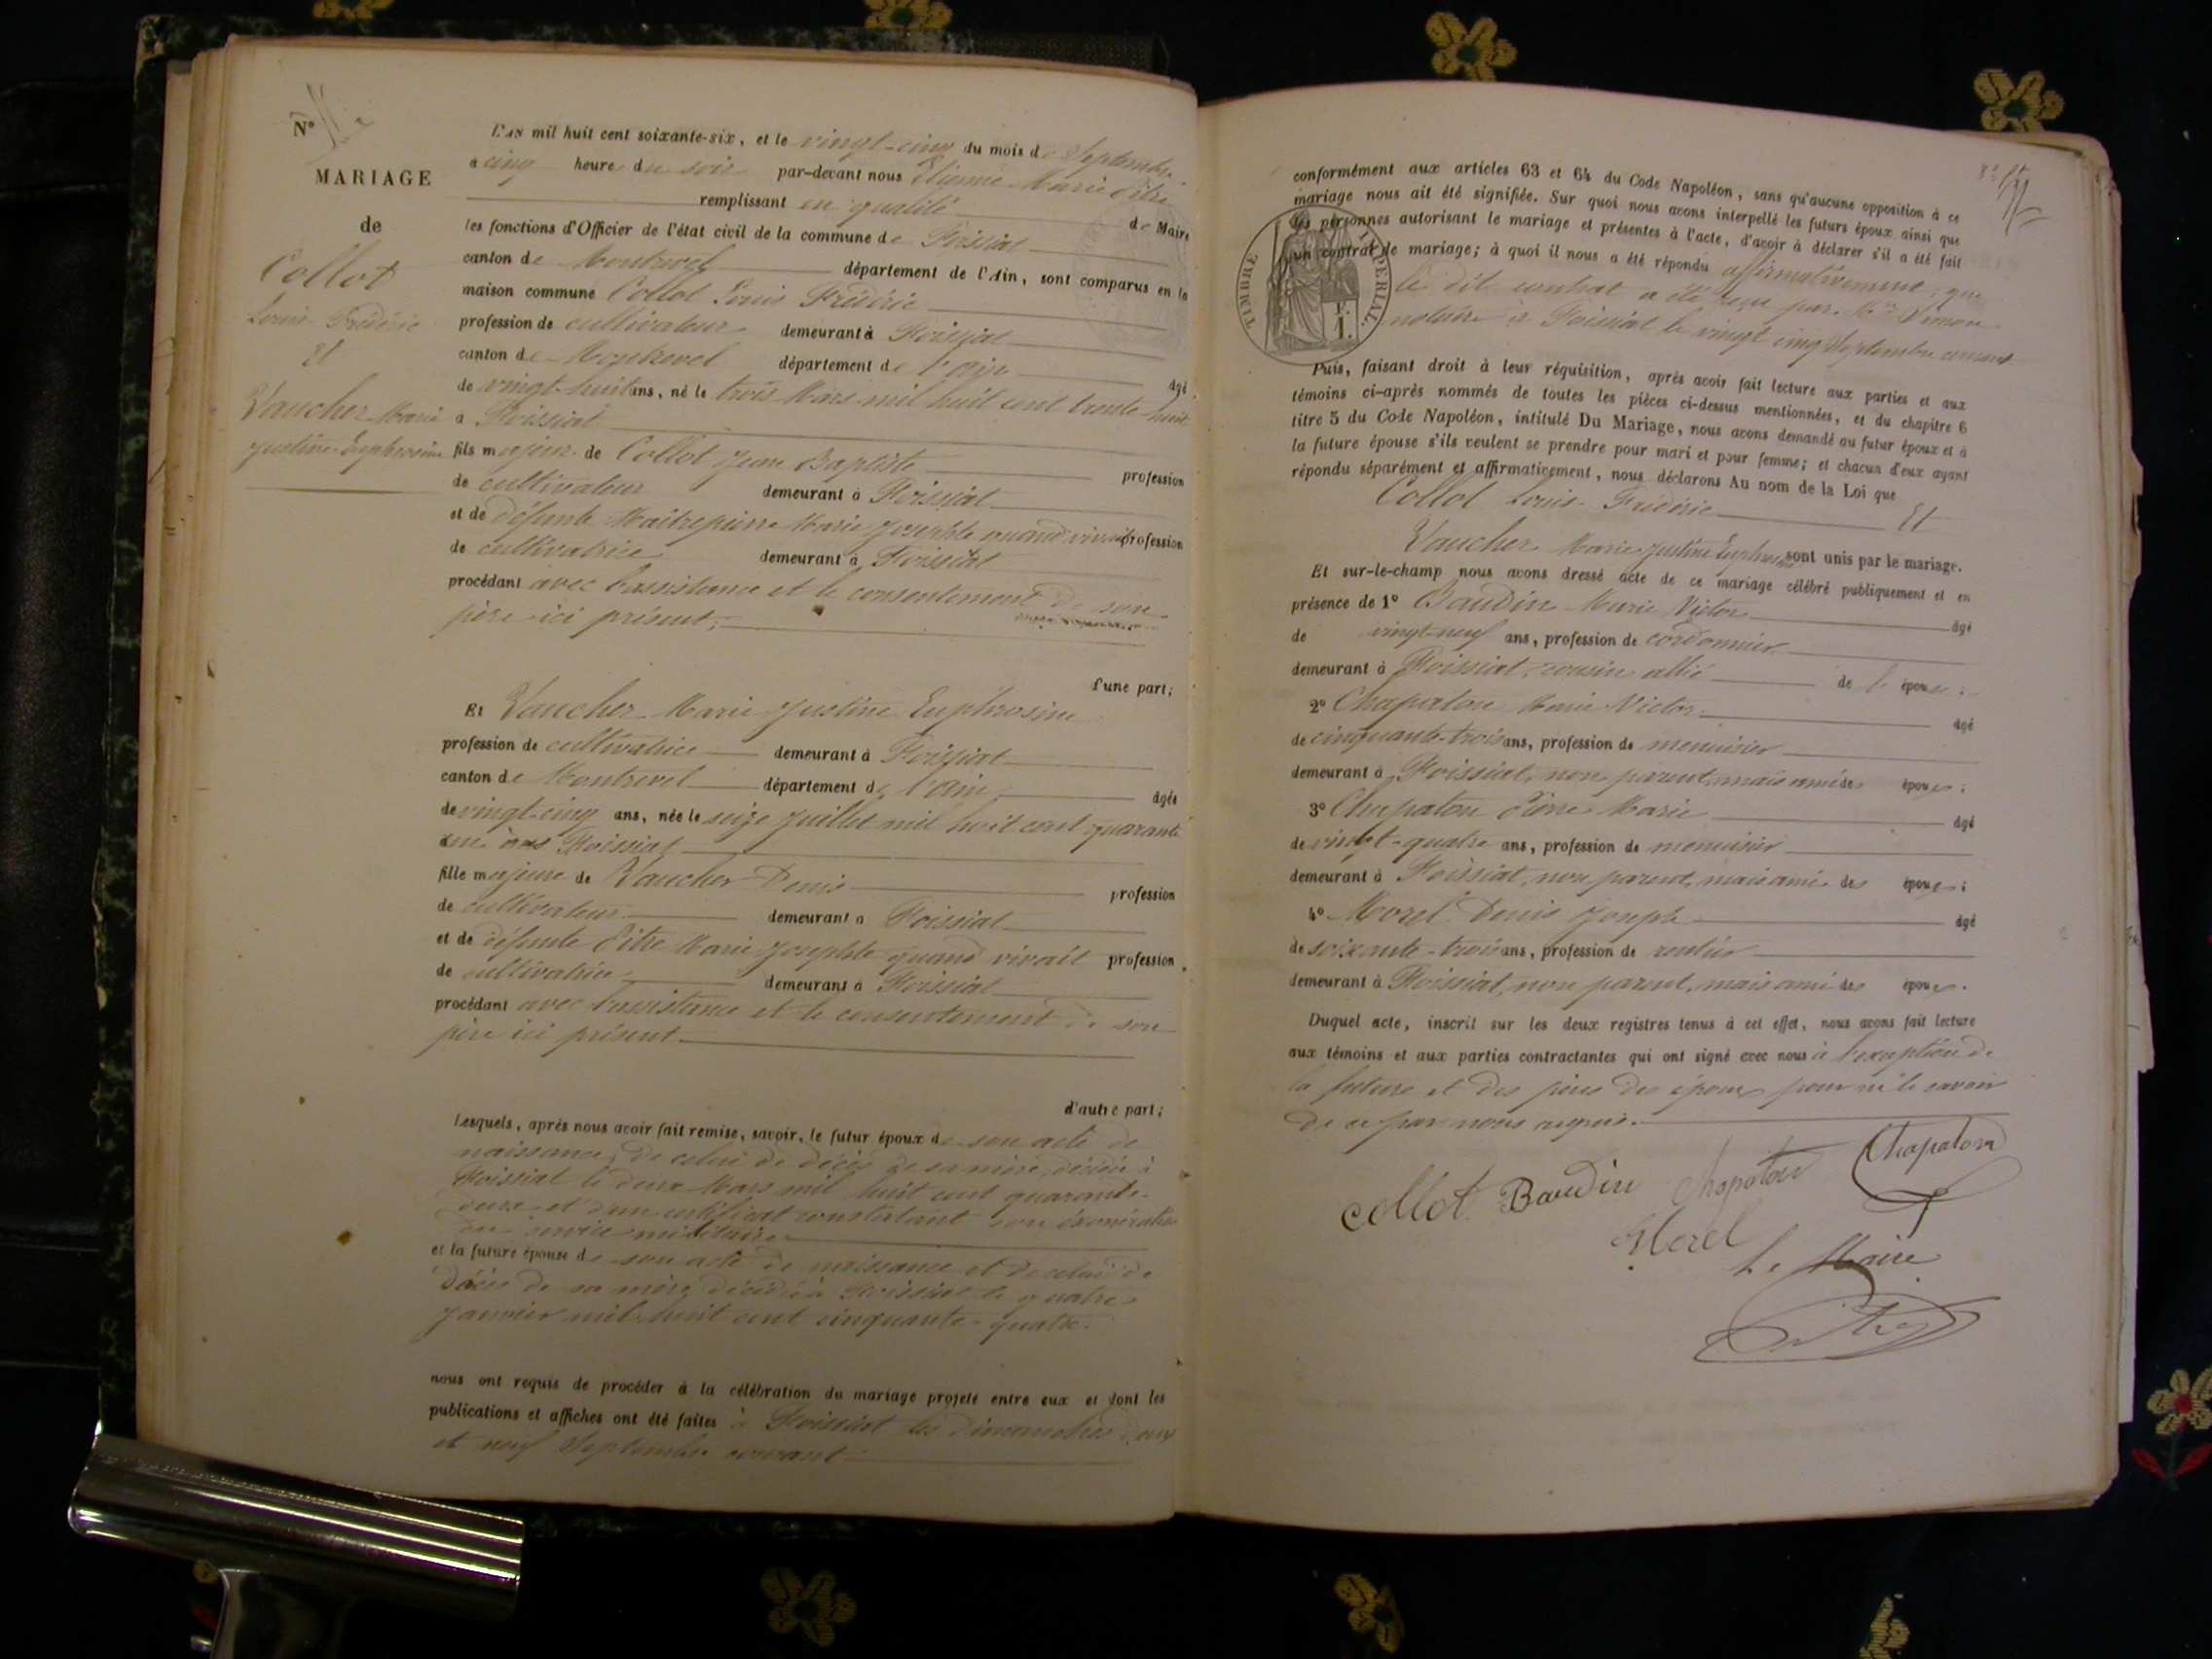 N°
MARIAGE
de
Collot
Louis Frédéric
et
Vaucher Marie
Justine Euphrosine
L'an mil huit cent soixante-six, et le vingt-cinq du mois de Septembre
à cinq heure du soir par-devant nous Etienne Marie Pitre
remplissant en qualité de Maire
les fonctions d'Officier de l'état civil de la commune de Foissiat
canton de Montrevel département de l'Ain, sont comparus en la
maison commune Collot Louis Frédéric
profession de cultivateur demeurant à Foissiat
canton de Montrevel département de l'ain âgé
de vingt-huit ans, né le trois Mars mil huit cent trente-huit
a Foissiat
fils majeur de Collot Jean Baptiste profession
de cultivateur demeurant à Foissiat
et de défunte Maitrepierre Marie Josephte quand vivait profession
de cultivatrice demeurant à Foissiat
procédant avec l'assistance et le consentement de son
père ici présent;
d'une part;
Et Vaucher Marie Justine Euphrosine
profession de cultivatrice demeurant à Foissiat
canton de Montrevel département de l'ain âgée
de vingt-cinq ans, née le seize Juillet mil huit cent quarante
un à Foissiat
fille majeure de Vaucher Denis profession
de cultivateur demeurant a Foissiat
et de défunte Pitre Marie Josephte quand vivait profession
de cultivatrice demeurant à Foissiat
procédant avec l'assistance et le consentement de son
père ici présent
d'autre part;
Lesquels, après nous avoir fait remise, savoir, le futur époux de son acte de
naissance, de celui de décès de sa mère, décédée à
Foissiat le deux Mars mil huit cent quarante-
deux et d'un certificat constatant son exonération
du service militaire
et la future épouse de son acte de naissance et de celui de
décès de sa mère, décédée à Foissiat le quatre
janvier mil huit cent cinquante-quatre.
nous ont requis de procéder à la célébration du mariage projeté entre eux et dont les
publications et affiches ont été faites à Foissiat les dimanches deux
et neuf Septembre courant
conformément aux articles 63 et 64 du Code Napoléon, sans qu'aucune opposition à ce
mariage nous ait été signifiée. Sur quoi nous avons interpellé les futurs époux ainsi que
les personnes autorisant le mariage et présentes à l'acte, d'avoir à déclarer s'il a été fait
un contrat de mariage; à quoi il nous a été répondu affirmativement, que
le dit contrat a été reçu par Me Simon
notaire à Foissiat le vingt cinq Septembre courant
TIMBRE IMPERIAL
F.
1.
Puis, faisant droit à leur réquisition, après avoir fait lecture aux parties et aux
témoins ci-après nommés de toutes les pièces ci-dessus mentionnées, et du chapitre 6
titre 5 du Code Napoléon, intitulé Du Mariage, nous avons demandé au futur époux et à
la future épouse s'ils veulent se prendre pour mari et pour femme; et chacun d'eux ayant
répondu séparément et affirmativement, nous déclarons Au nom de la Loi que
Collot Louis-Frédéric Et
Vaucher Marie Justine Euphrosine sont unis par le mariage.
Et sur-le-champ nous avons dressé acte de ce mariage célébré publiquement et en
présence de 1° Baudin Marie Victor âgé
de vingt-neuf ans, profession de cordonnier
demeurant à Foissiat, cousin allié de l'époux;
2° Chapaton Marie Victor âgé
de cinquante-trois ans, profession de menuisier
demeurant à Foissiat, non parent, mais ami des époux;
3° Chapaton Pierre Marie âgé
de vingt-quatre ans, profession de menuisier
demeurant à Foissiat, non parent, mais ami des époux;
4° Morel Denis Joseph âgé
de soixante-trois ans, profession de rentier
demeurant à Foissiat, non parent, mais ami des époux.
Duquel acte, inscrit sur les deux registres tenus à cet effet, nous avons fait lecture
aux témoins et aux parties contractantes qui ont signé avec nous à l'exception de
la future et des pères des époux pour ne le savoir
de ce par nous requis.
Collot Baudin Chapaton Chapaton
Morel
Le Maire
Pitre